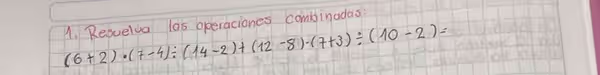 1. Resuelva las operaciones combinadas:
(6+2)·(7-4)÷(14-2)+(12-8)·(7+3)÷(10-2)=